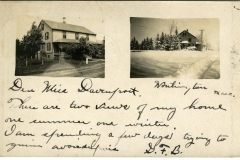 Dear Miss Davenport, Whitington
These are two views of my home
one summer, one winter,
I am spending a few days trying to
gain avoirdupois D.F.B.